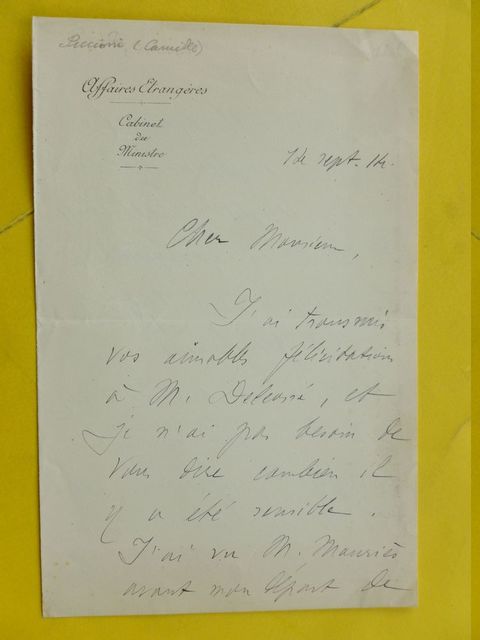 Piccioni (Camille)
Affaires Etrangères
Cabinet
du
Ministre
sept. 14.
Cher Monsieur,
J'ai transmis
vos aimables félicitations
à M. Delcassé, et
je n'ai pas besoin de
vous dire combien il
y a été sensible.
J'ai vu M. Mauriès
avant mon départ de